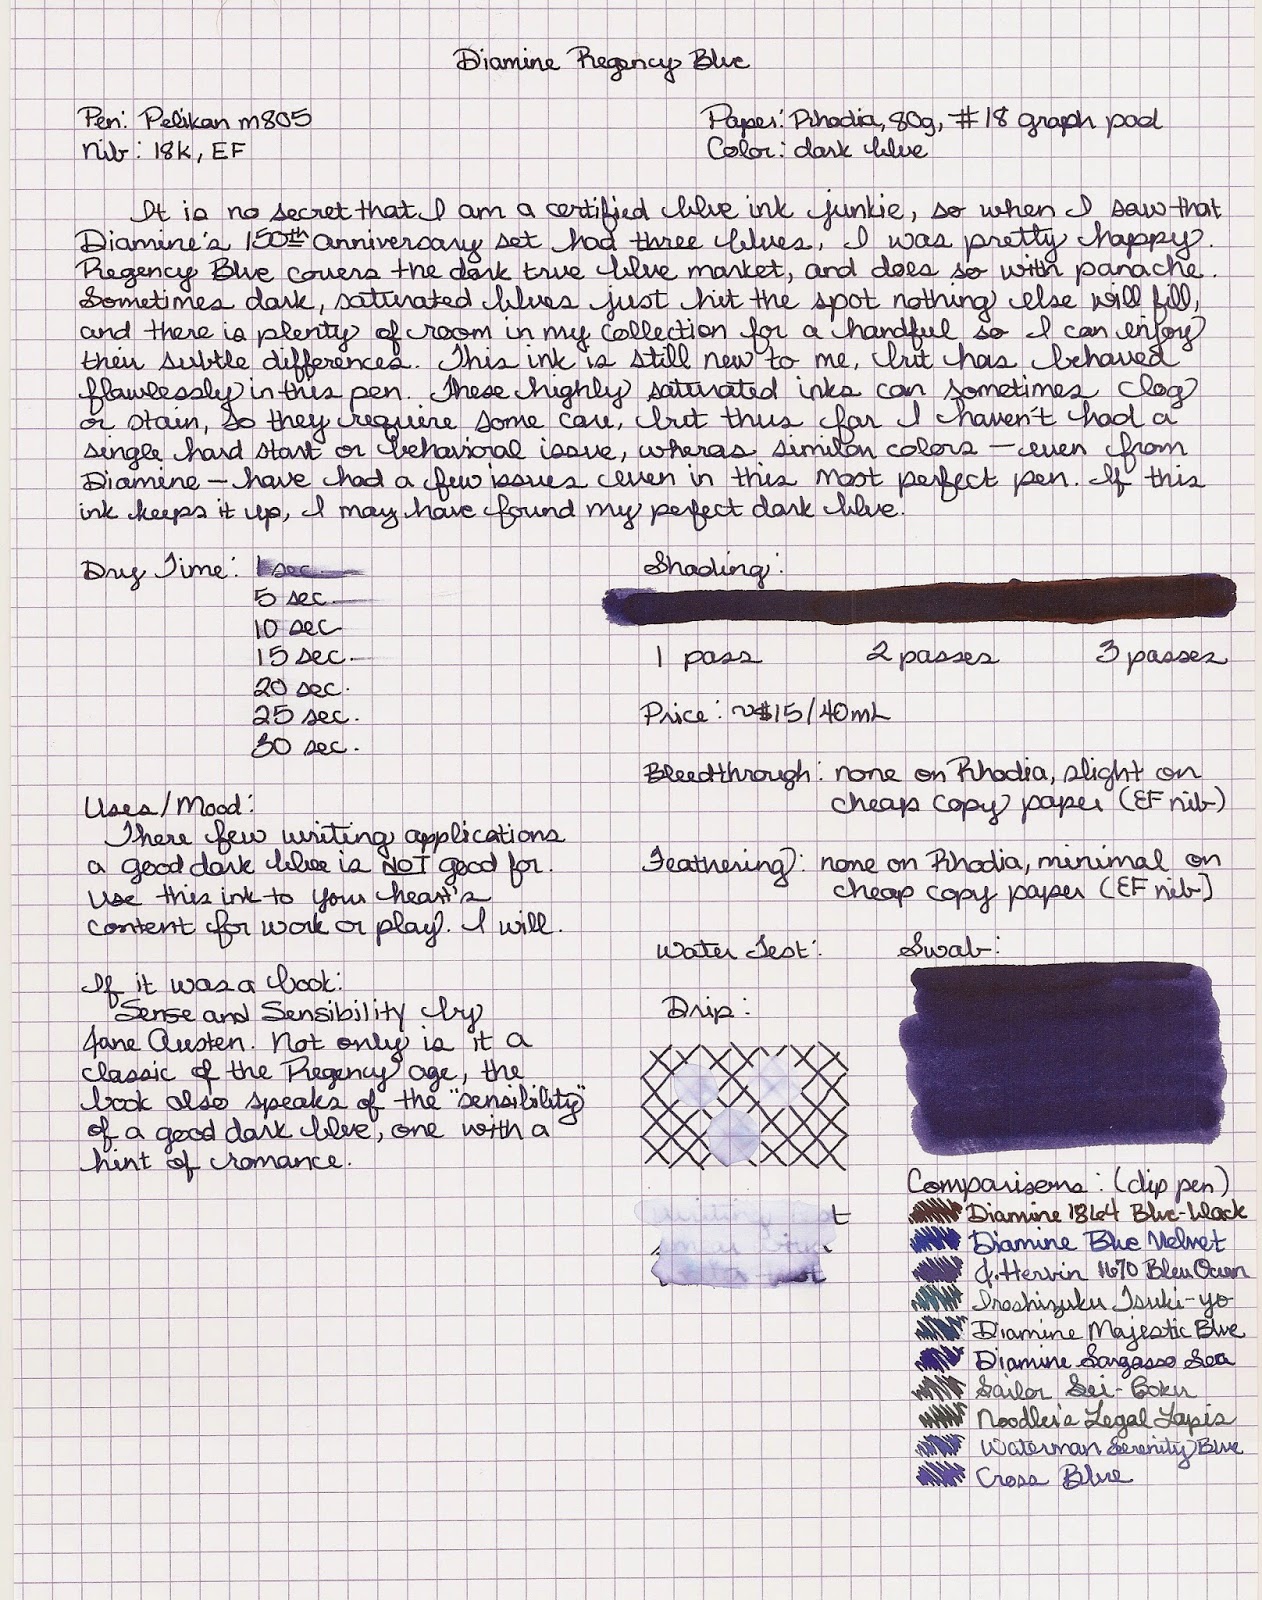 Diamine Regency Blue
Pen: Pelikan m805
Nib: 18k, EF
Paper: Rhodia, 80g, #18 graph pad
Color: dark blue
It is no secret that I am a certified blue ink junkie, so when I saw that
Diamine's 150th anniversary set had three blues, I was pretty happy.
Regency Blue covers the dark true blue market, and does so with panache.
Sometimes dark, saturated blues just hit the spot nothing else will fill,
and there is plenty of room in my collection for a handful so I can enjoy
their subtle differences. This ink is still new to me, but has behaved
flawlessly in this pen. These highly saturated inks can sometimes clog
or stain, so they require some care, but thus far I haven't had a
single hard start or behavioral issue, wheras similar colors – even from
Diamine – have had a few issues even in this most perfect pen. If this
ink keeps it up, I may have found my perfect dark blue.
Dry Time: 1 sec.
5 sec.
10 sec
15 sec.
20 sec.
25 sec.
30 sec.
Uses/Mood:
There few writing applications
a good dark blue is NOT good for.
Use this ink to your heart's
content for work or play. I will.
If it was a book:
Sense and Sensibility by
Jane Austen. Not only is it a
classic of the Regency age, the
book also speaks of the "sensibility"
of a good dark blue, one with a
hint of romance.
Shading:
1 pass 2 passes 3 passes
Price: ~$15/40mL
Bleedthrough: none on Rhodia, slight on
cheap copy paper (EF nib)
Feathering: none on Rhodia, minimal on
cheap copy paper (EF nib)
Water Test:
Drip:
Swab:
Comparisons: (dip pen)
Diamine 1864 Blue-black
Diamine Blue Velvet
J. Herbin 1670 Bleu Ocean
Iroshizuku Tsuki-yo
Diamine Majestic Blue
Diamine Sargasso Sea
Sailor Sei-Boku
Noodler's Legal Lapis
Waterman Serenity Blue
Cross Blue